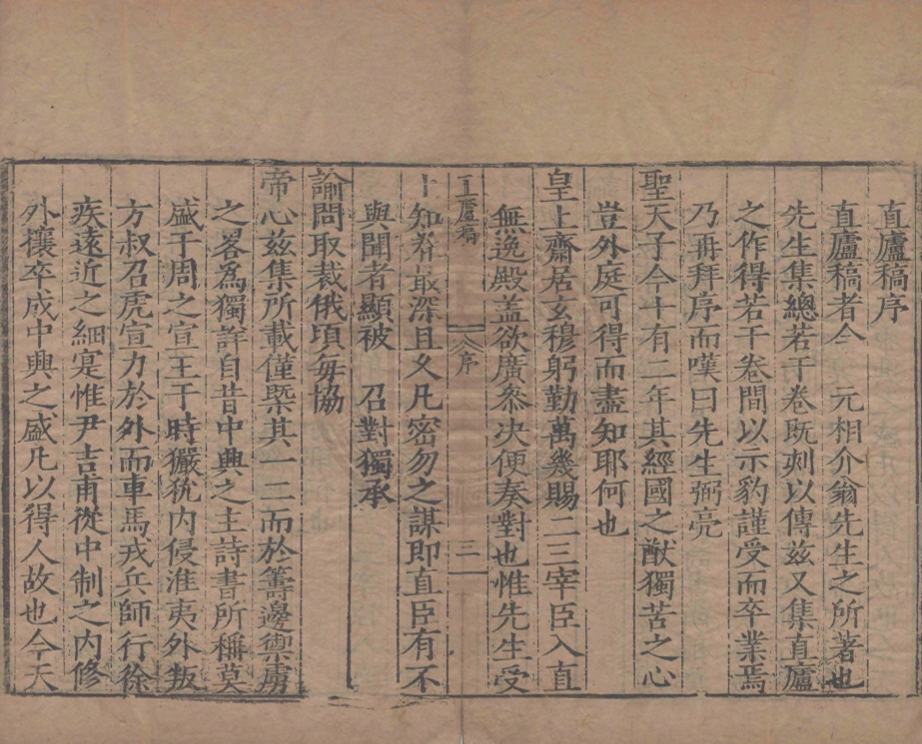 直廬稿序
直廬稿者今　元相介翁先生之所著也
先生集總若干卷既刻以傳茲又集直廬
之作得若干卷間以示豹謹受而卒業焉
乃再拜序而嘆曰先生弼亮
聖天子今十有二年其經國之猷獨苦之心
豈外庭可得而盡知耶何也
皇上齋居玄穆躬勤萬幾賜二三宰臣入直
無逸殿盖欲廣叅决便奏對也惟先生受
直廬稿　序　三
上知眷最深且久凡密勿之謀即直臣有不
與聞者顯被　召對獨承
諭問取裁俄頃每協
帝心茲集所載僅槩其一二而於籌邊禦虜
之畧爲獨詳自昔中興之主詩書所稱莫
盛于周之宣王于時玁狁内侵淮夷外叛
方叔召虎宣力於外而車馬戎兵師行徐
疾遠近之細寔惟尹吉甫從中制之内修
外攘卒成中興之盛凡以得人故也今天